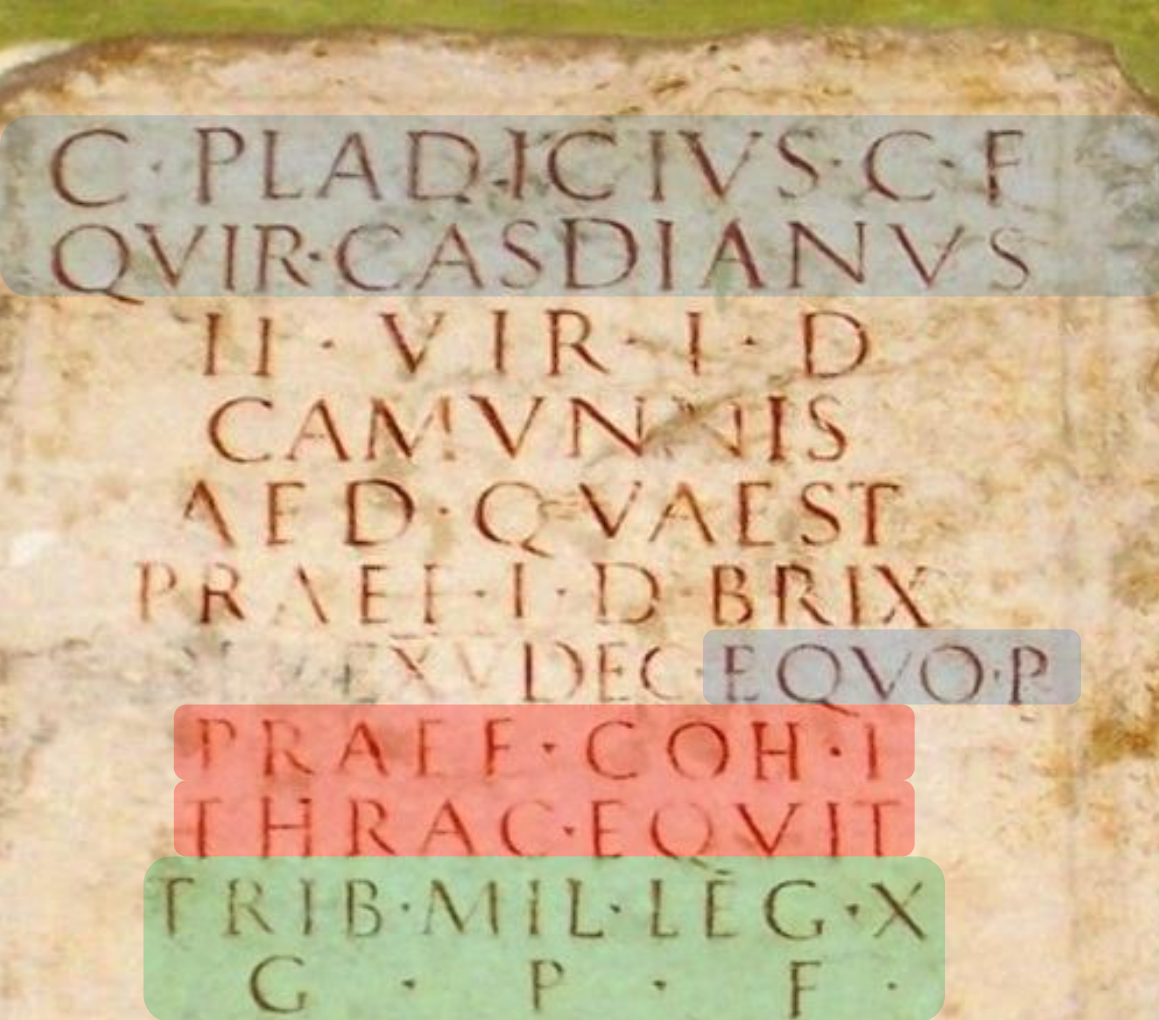 C · PLADICIVS · C · F
QVIR · CASDIANVS
II · VIR · I · D
CAMVNNIS
AED · QVAEST
PRAEF · I · D · BRIX
XV DEC · EQVO · P
PRAEF · COH · I
THRAC · EQVIT
TRIB · MIL · LEG · X
G · P · F ·